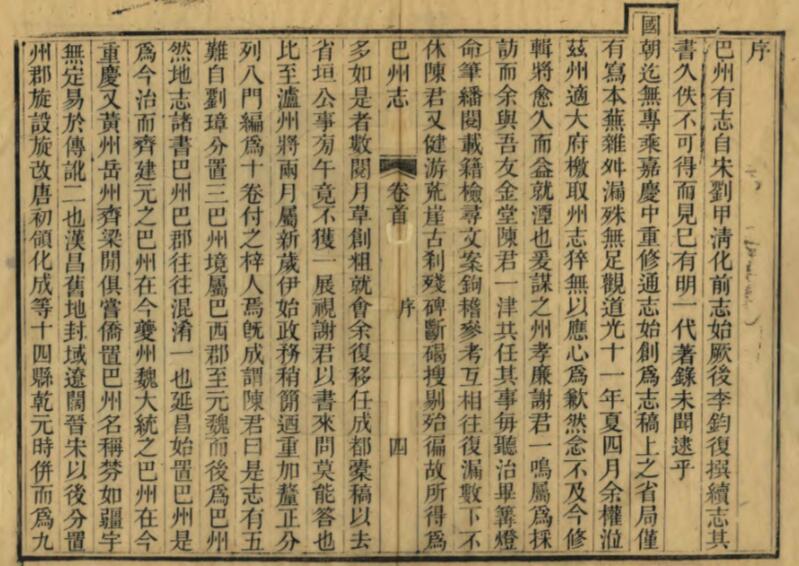 序
巴州有志自宋劉甲清化前志始厥後李鈞復撰續志其
書久佚不可得而見巳有明一代著錄未聞逮乎
國朝迄無專乘嘉慶中重修通志始創爲志稿上之省局僅
有寫本蕪雜舛漏殊無足觀道光十一年夏四月余權涖
茲州適大府檄取州志猝無以應心爲歉然念不及今修
輯將愈久而益就湮也爰謀之州孝廉謝君一鳴屬爲採
訪而余與吾友金堂陳君一津共任其事每聽治畢篝燈
命筆繙閱載籍檢尋文案鉤稽參考互相往復漏數下不
休陳君又健游荒崖古刹殘碑斷碣搜剔殆徧故所得爲
巴州志
卷首
序
四
多如是者數閱月草創粗就會余復移任成都橐稿以去
省垣公事旁午竟不獲一展視謝君以書來問莫能答也
比至瀘州將兩月屬新歲伊始政務稍簡迺重加釐正分
列八門編爲十卷付之梓人焉旣成謂陳君曰是志有五
難自劉璋分置三巴州境屬巴西郡至元魏而後爲巴州
然地志諸書巴州巴郡往往混淆一也延昌始置巴州是
爲今治而齊建元之巴州在今夔州魏大統之巴州在今
重慶又黃州岳州齊梁閒俱嘗僑置巴州名稱棼如疆宇
無定易於傳訛二也漢昌舊地封域遼闊晉宋以後分置
州郡旋設旋改唐初領化成等十四縣乾元時併而爲九